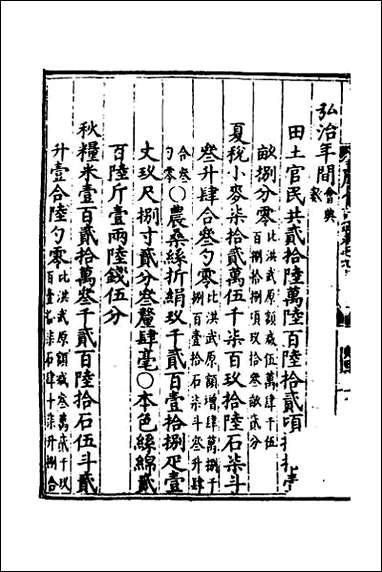 弘治年間會典數
田土官民共貳拾陸萬陸百陸拾貳項
畝捌分零比洪武原額減伍萬肆千伍
百捌拾捌項玖拾叁畝貳分
夏稅小麥柒拾貳萬伍千柒百玖拾陸石柒斗
叁升肆合叁勺零比洪武原額增肆萬捌千
捌百壹拾石柒斗叁升肆
合叁勺零○農桑絲折絹玖千貳百壹拾捌疋壹
丈玖尺捌寸貳分叁釐肆毫○本色絲綿貳
百陸斤壹兩陸錢伍分
秋糧米壹百貳拾萬叁千貳百陸拾石伍斗貳
升壹合陸勺零比洪武原額減叁萬貳千玖
百壹拾柒石肆斗柒升捌合